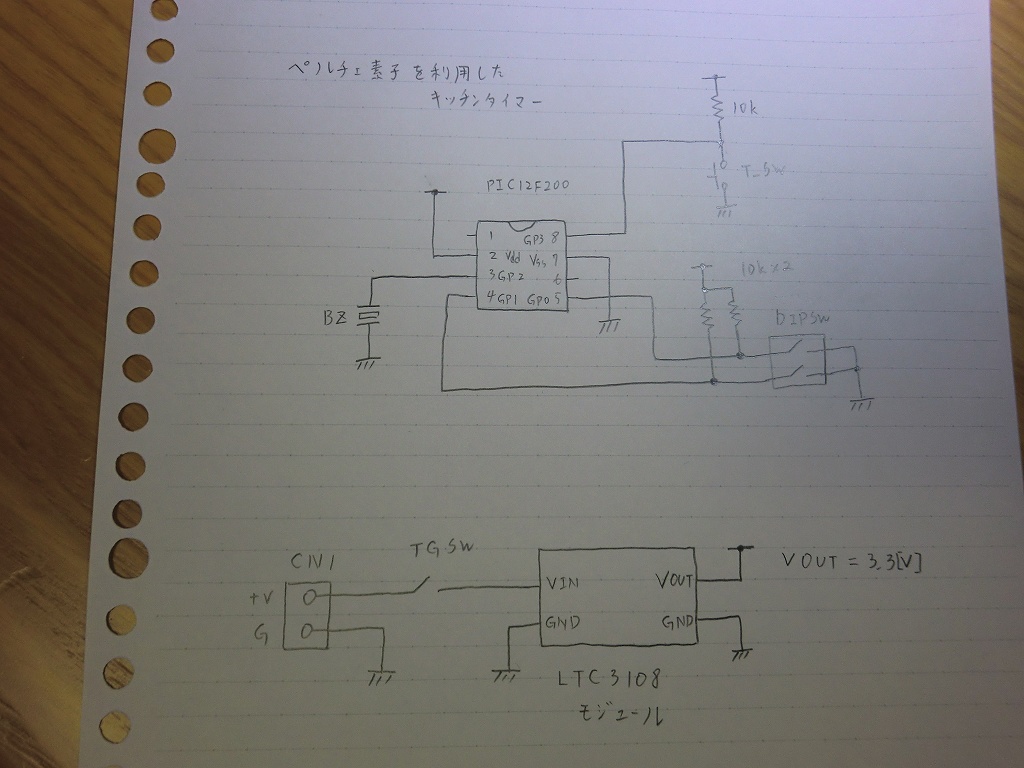 ペルチェ素子を利用した
キッチンタイマー
10k
T_SW
PIC12F200
1
GP3 8
2 Vdd Vss 7
3 GP2 6
4 GP1 GP0 5
BZ
10k×2
DIPSW
CN1
TGSW
+V
G
VIN VOUT
GND GND
VOUT = 3.3[V]
LTC3108
モジュール